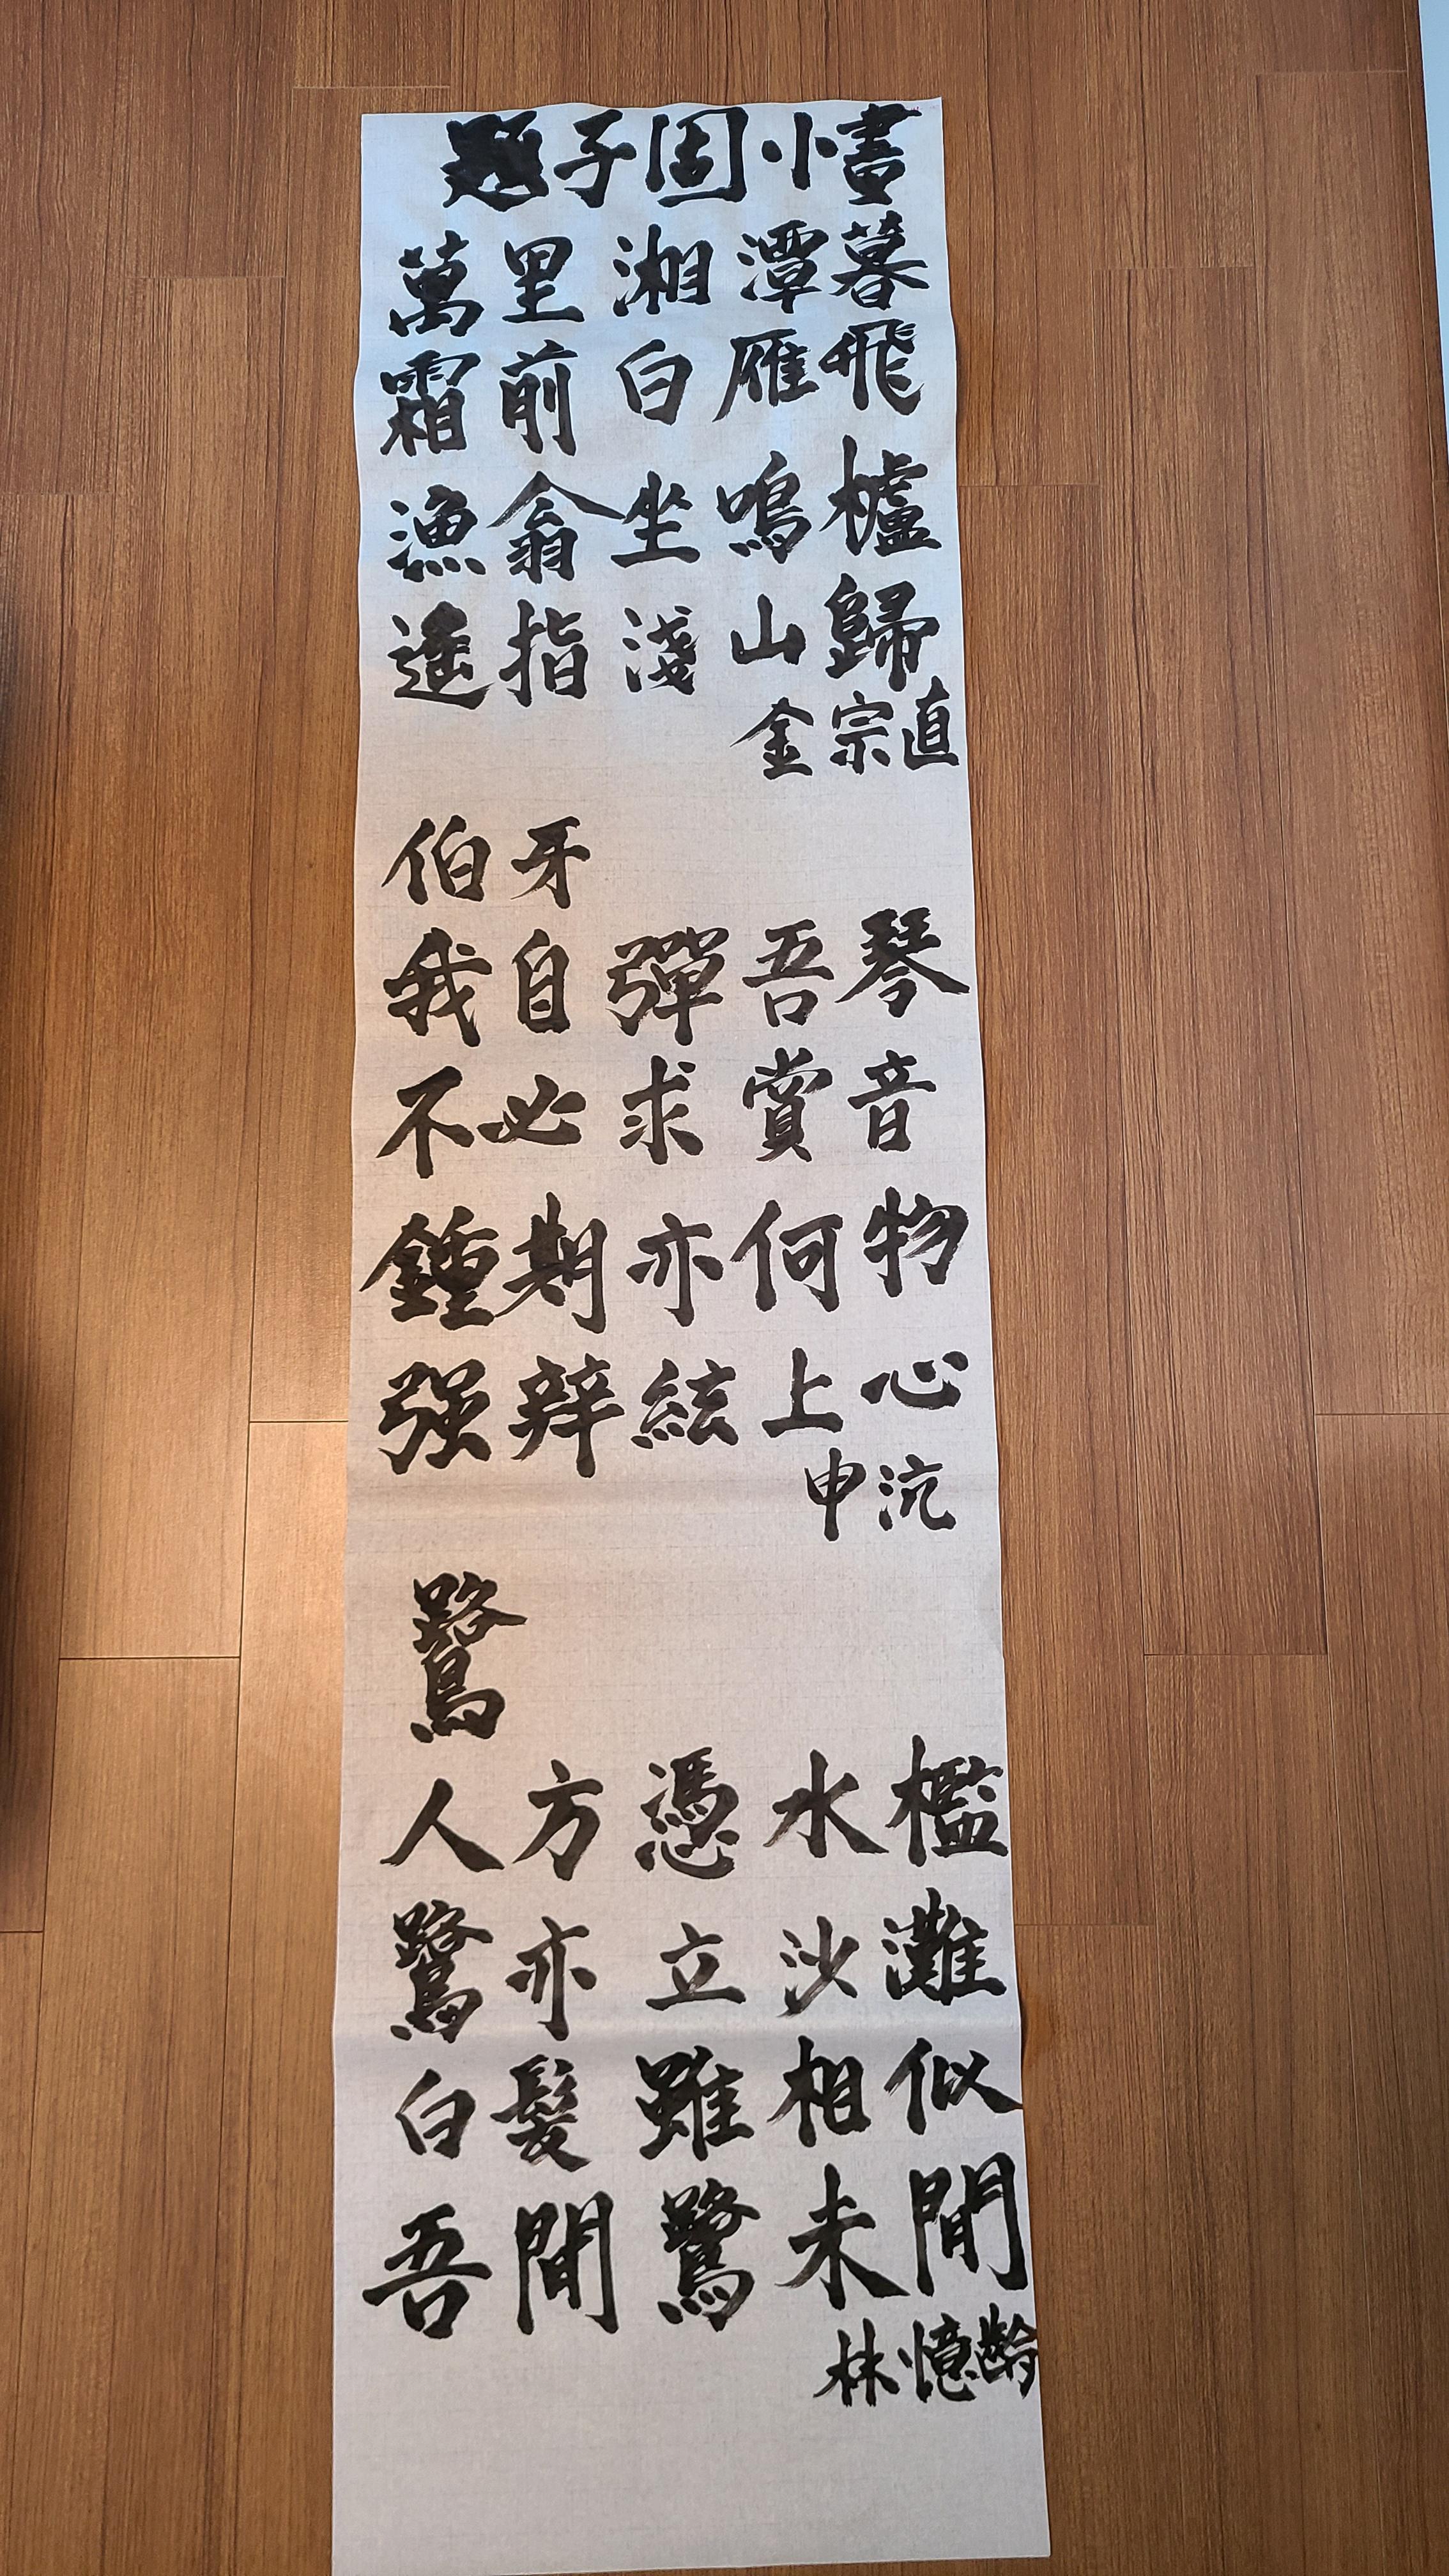 題子固小畫
萬里湘潭暮
霜前白雁飛
漁翁坐鳴櫨
遙指淺山歸
金宗直
伯牙
我自彈吾琴
不必求賞音
鍾期亦何物
强辤絃上心
申沆
鷺
人方憑水檻
鷺亦立沙灘
白髮雖相似
吾閒鷺未閒
林憶齡